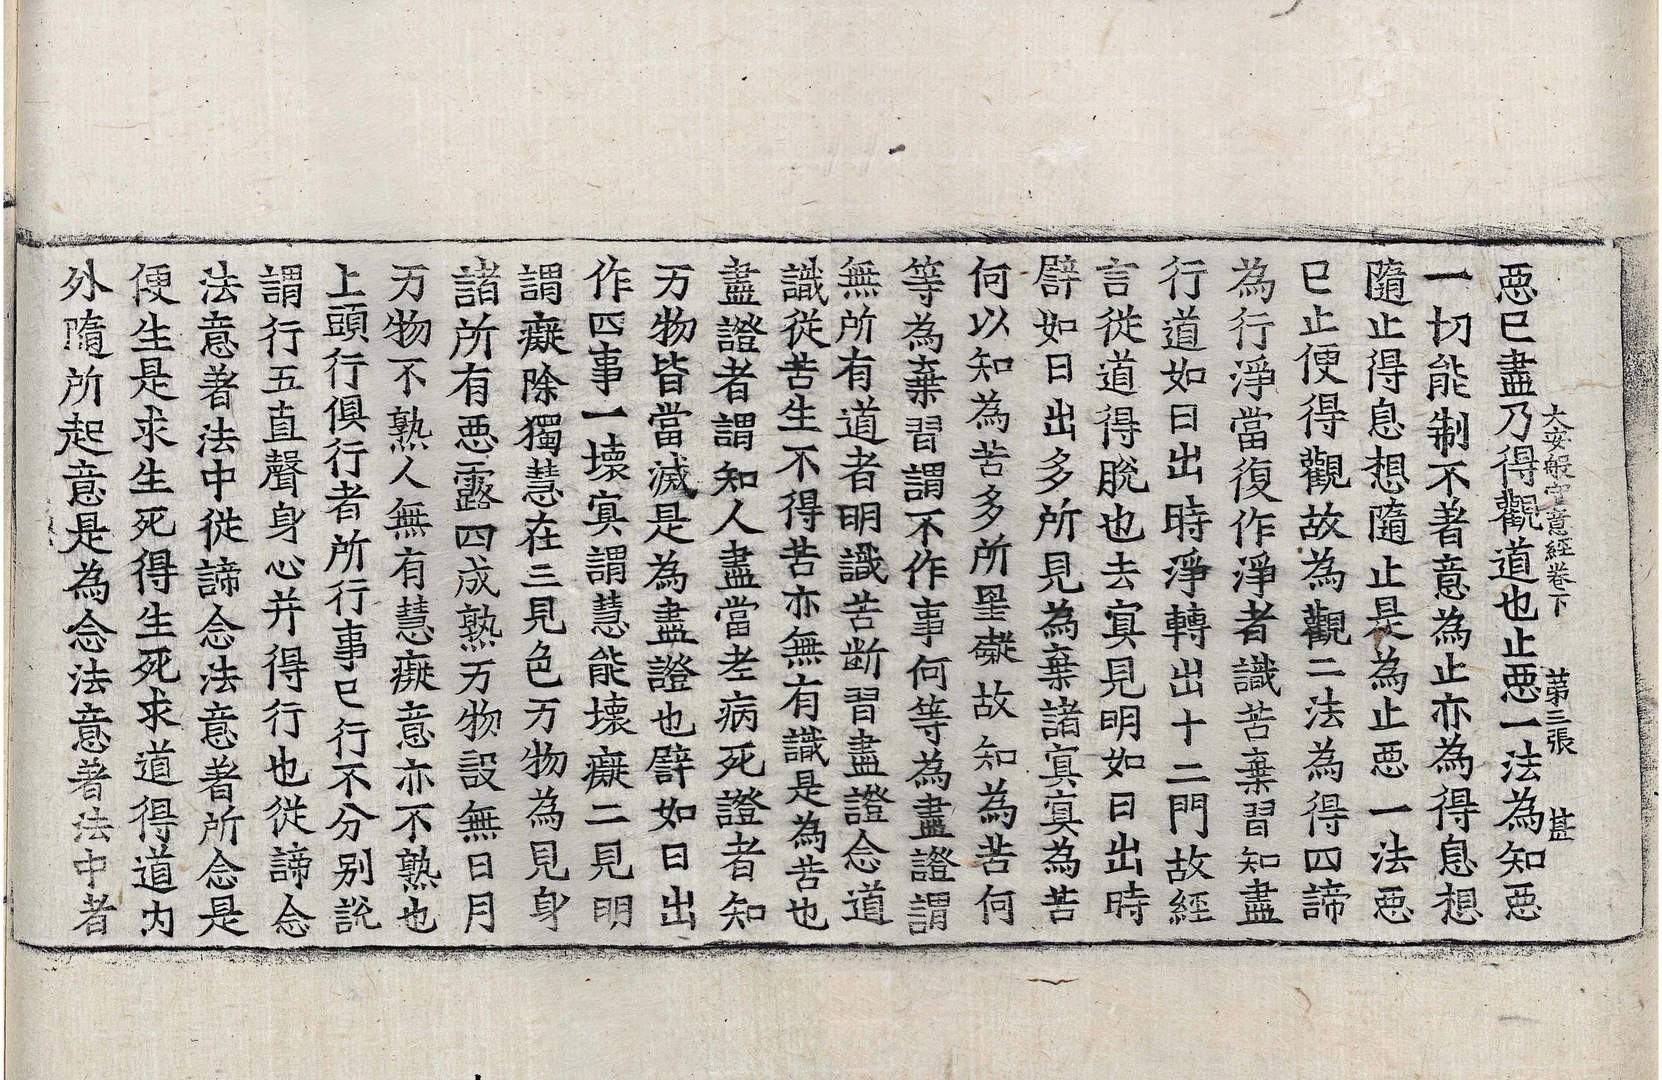 大安般守意經卷下　第三張　甚
惡已盡乃得觀道也止惡一法為知惡
一切能制不著意為止亦為得息想
隨止得息想隨止是為止惡一法惡
已止便得觀故為觀二法為得四諦
為行淨當復作淨者識苦棄習知盡
行道如日出時淨轉出十二門故經
言從道得脫也去冥見明如日出時
譬如日出多所見為棄諸冥冥為苦
何以知為苦多所罣礙故知為苦何
等為棄習謂不作事何等為盡證謂
無所有道者明識苦斷習盡證念道
識從苦生不得苦亦無有識是為苦也
盡證者謂知人盡當老病死證者知
万物皆當滅是為盡證也譬如日出
作四事一壞冥謂慧能壞癡二見明
謂癡除獨慧在三見色万物為見身
諸所有惡露四成熟万物設無日月
万物不熟人無有慧癡意亦不熟也
上頭行俱行者所行事已行不分別說
謂行五直聲身心并得行也從諦念
法意著法中從諦念法意著所念是
便生是求生死得生死求道得道內
外隨所起意是為念法意著法中者